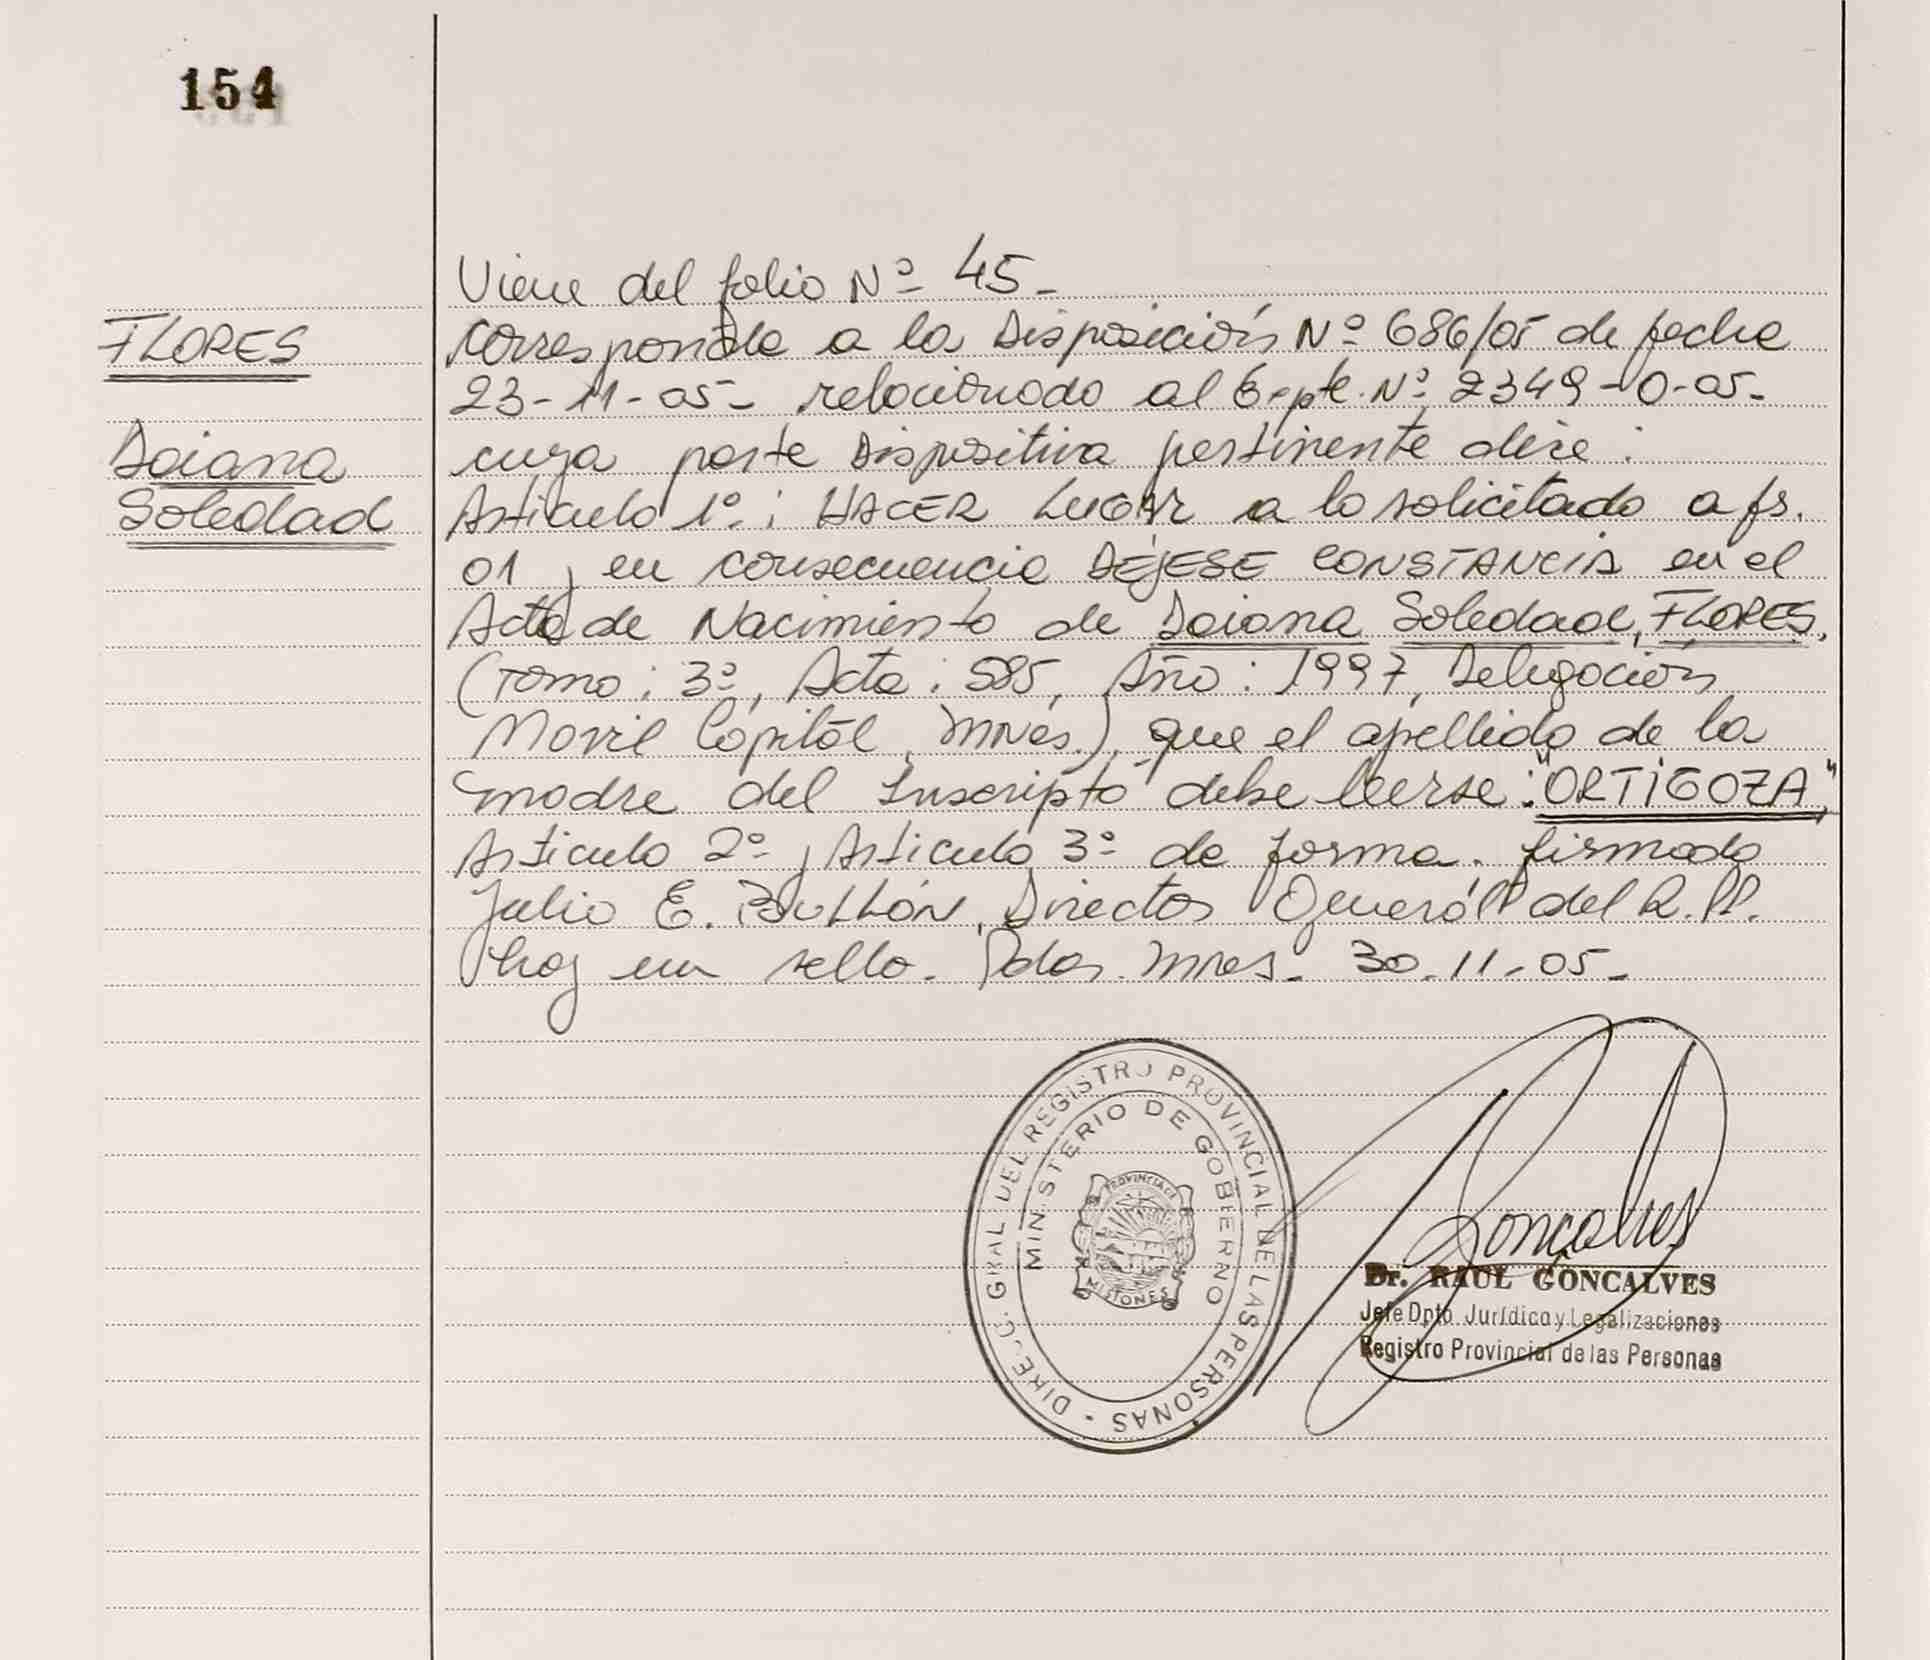 154
Viene del folio Nº 45-
FLORES
Corresponde a la Disposición Nº 686/05 de fecha
23-11-05- relacionado al Expte. Nº 2349-0-05-
Daiana
cuya parte Dispositiva pertinente dice:
Soledad
Artículo 1º: HACER LUGAR a lo solicitado a fs.
01 y en consecuencia DÉJESE CONSTANCIA en el
Acta de Nacimiento de Daiana Soledad, FLORES,
(Tomo: 3º, Acta: 585, Año: 1997, Delegación
Movil Capital, Mnes.), que el apellido de la
madre del Inscripto debe leerse: "ORTIGOZA",
Artículo 2º y Artículo 3º de forma. firmado
Julio E. Director General del R.PP.
hay un sello. Pdas. Mnes. 30-11-05-
DIREC. GRAL. DEL REGISTRO PROVINCIAL DE LAS PERSONAS -
MINISTERIO DE GOBIERNO
PROVINCIA DE
MISIONES
Goncalves
Dr. RAUL GONCALVES
Jefe Dpto. Jurídico y Legalizaciones
Registro Provincial de las Personas